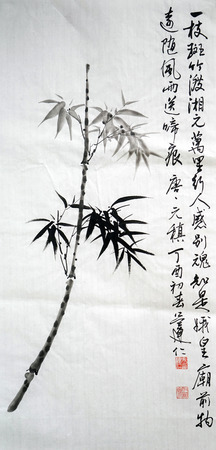 一枝斑竹渡湘元萬里行人感别魂知是娥皇廟前物
遠随風雨送啼痕 唐·元稹 丁酉初春